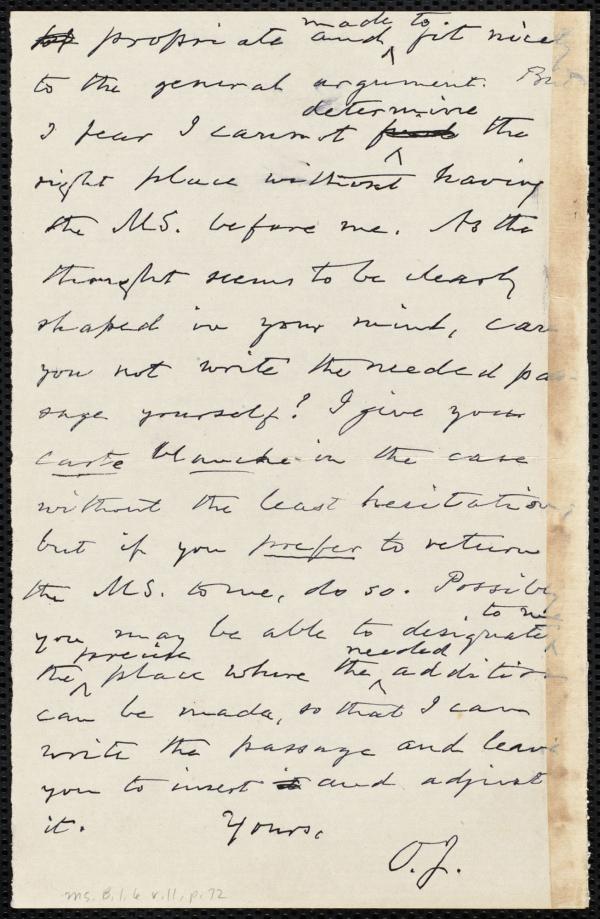 propriate and made to fit nicely
to the general argument. But
I fear I cannot determine the
right place without having
the M.S. before me. As the
thought seems to be clearly
shaped in your mind, can
you not write the needed pas-
sage yourself? I give your
carte blanche in the case
without the least hesitation,
but if you prefer to return
the M.S. to me, do so. Possibly
you may be able to designate to me
the precise place where the needed addition
can be made, so that I can
write the passage and leave
you to insert it and adjust
it. Yours,
O. J.
ms. B.1.6 v.11, p.72